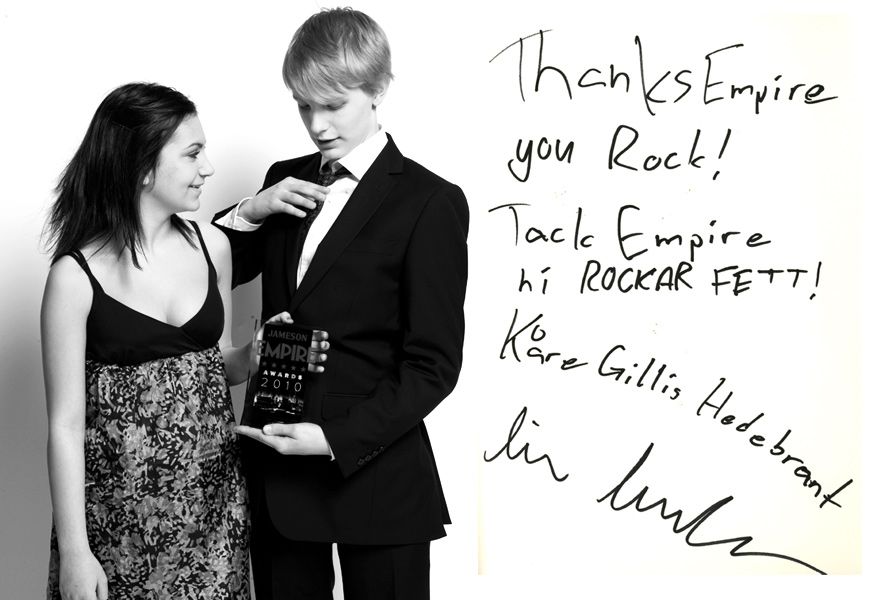 JAMESON
EMPIRE
AWARDS
2010
Thanks Empire
you Rock!
Tack Empire
ni ROCKAR FETT!
Kåre Gillis Hedebrant